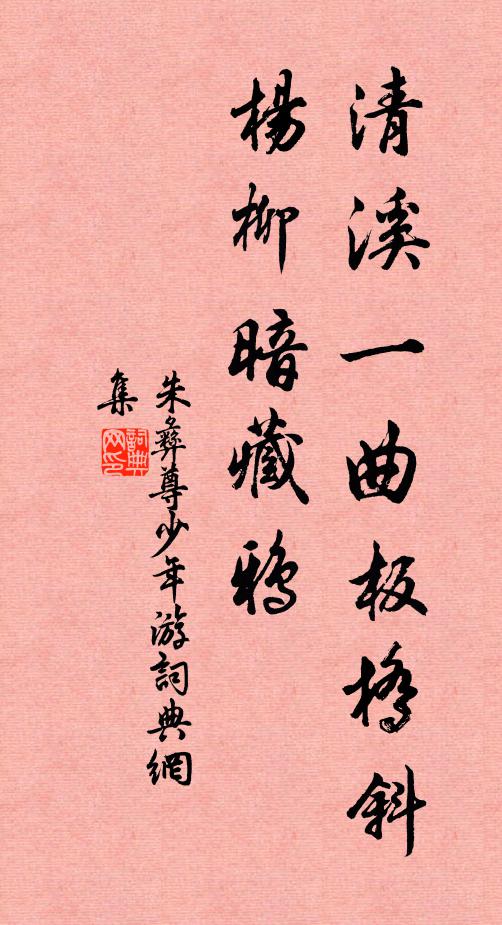 清溪一曲板橋斜
楊柳暗藏鴉
朱彝尊少年游詞典網
集
詞典
网印